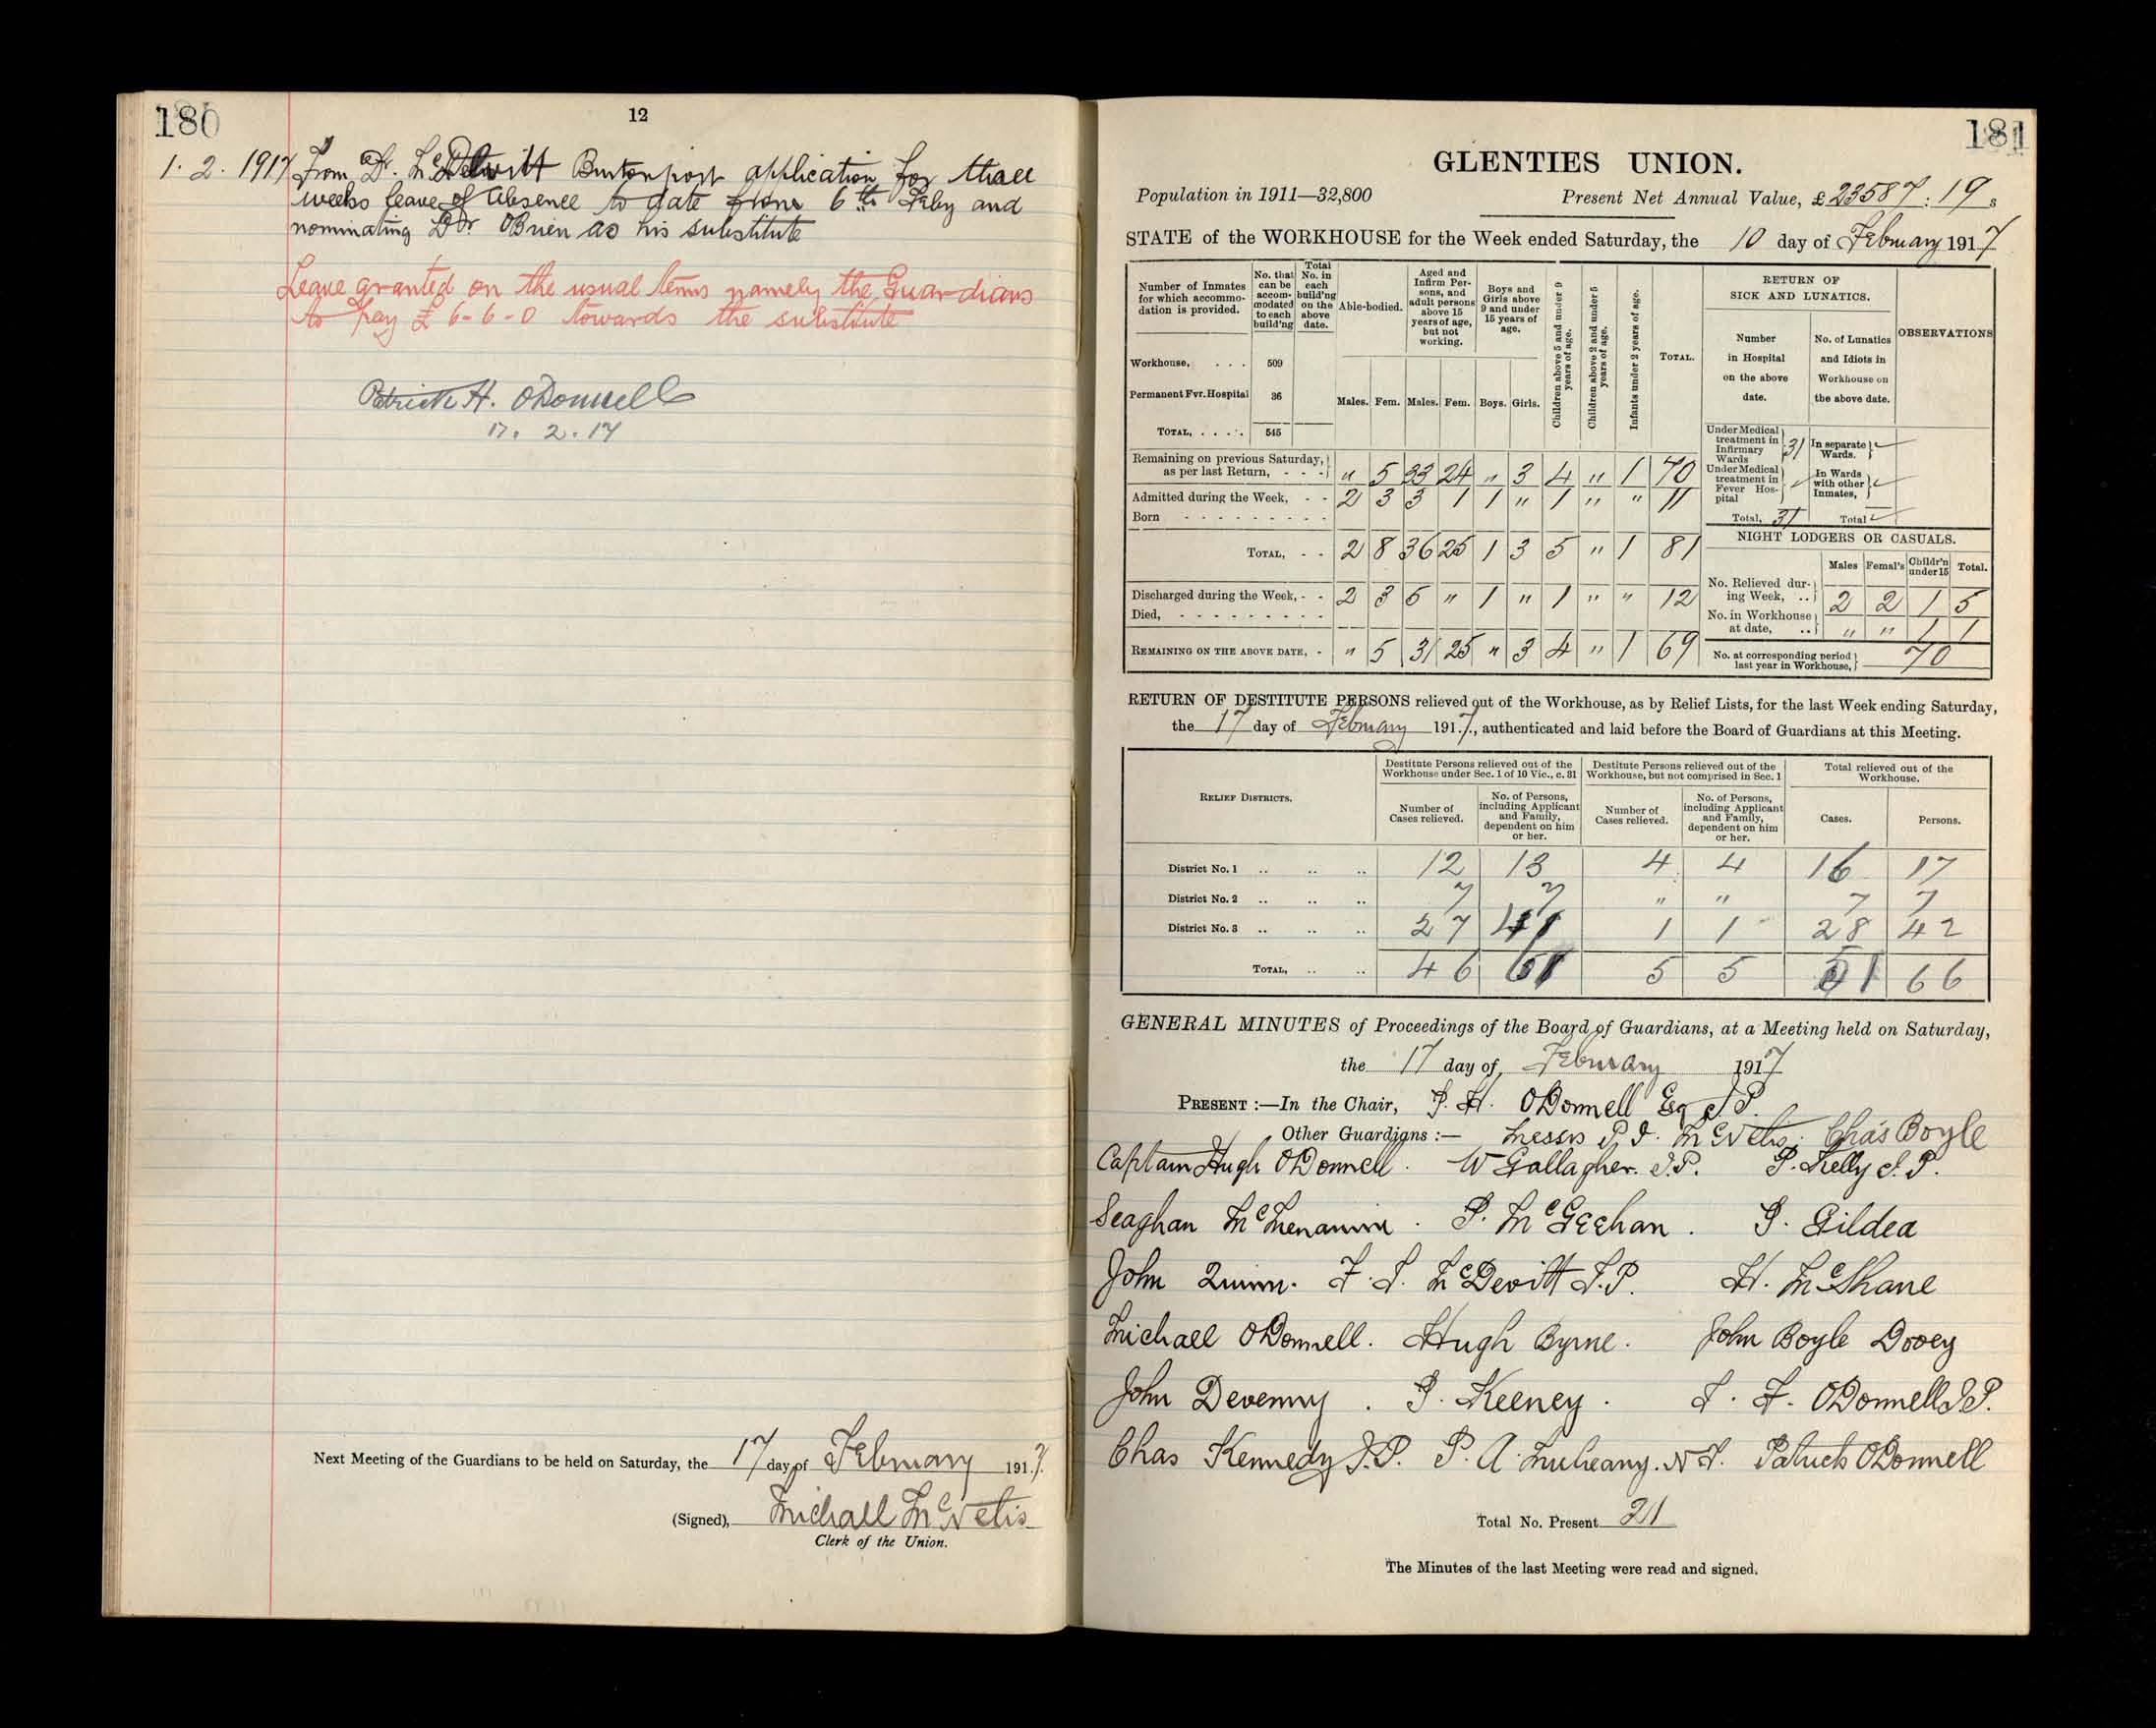 180
12
1. 2. 1917 From Dr. McDevitt Burtonport application for three
weeks leave of absence to date from 6th Feby and
nominating Dr. OBrien as his substitute
Leave granted on the usual terms namely the Guardians
to pay £ 6-6-0 towards the substitute
Patrick H. ODonnell
17. 2. 17
Next Meeting of the Guardians to be held on Saturday, the 17 day of February 1917.
(Signed), Michael McNelis
Clerk of the Union.
181
GLENTIES UNION.
Population in 1911—32,800 Present Net Annual Value, £23587 : 19 s
STATE of the WORKHOUSE for the Week ended Saturday, the 10 day of February 1917
Number of Inmates for which accommodation is provided. No. that can be accommodated to each build'ng Total No. in each build'ng on the above date. Able-bodied. Aged and Infirm Persons, and adult persons above 15 years of age, but not working. Boys and Girls above 9 and under 15 years of age. Children above 5 and under 9 years of age. Children above 2 and under 5 years of age. Infants under 2 years of age. TOTAL. RETURN OF SICK AND LUNATICS. OBSERVATIONS
Number in Hospital on the above date. No. of Lunatics and Idiots in Workhouse on the above date.
Workhouse, . . . 509
Permanent Fvr. Hospital 36
TOTAL, . . . . 545
Males. Fem. Males. Fem. Boys. Girls.
Remaining on previous Saturday, as per last Return, - - - " 5 33 24 " 3 4 " 1 70
Admitted during the Week, - - 2 3 3 1 1 " 1 " " 11
Born - - - - - - - - -
TOTAL, - - 2 8 36 25 1 3 5 " 1 81
Discharged during the Week, - - 2 3 5 " 1 " 1 " " 12
Died, - - - - - - - - -
REMAINING ON THE ABOVE DATE, - " 5 31 25 " 3 4 " 1 69
Under Medical treatment in Infirmary Wards 31 In separate Wards.
Under Medical treatment in Fever Hospital In Wards with other Inmates,
Total, 31 Total
NIGHT LODGERS OR CASUALS.
Males Femal's Childr'n under 15 Total.
No. Relieved during Week, .. 2 2 1 5
No. in Workhouse at date, .. " " 1 1
No. at corresponding period last year in Workhouse, 70
RETURN OF DESTITUTE PERSONS relieved out of the Workhouse, as by Relief Lists, for the last Week ending Saturday,
the 17 day of February 1917., authenticated and laid before the Board of Guardians at this Meeting.
RELIEF DISTRICTS. Destitute Persons relieved out of the Workhouse under Sec. 1 of 10 Vic., c. 31 Destitute Persons relieved out of the Workhouse, but not comprised in Sec. 1 Total relieved out of the Workhouse.
Number of Cases relieved. No. of Persons, including Applicant and Family, dependent on him or her. Number of Cases relieved. No. of Persons, including Applicant and Family, dependent on him or her. Cases. Persons.
District No. 1 .. .. .. 12 13 4 4 16 17
District No. 2 .. .. .. 7 7 " " 7 7
District No. 3 .. .. .. 27 41 1 1 28 42
TOTAL, .. .. 46 61 5 5 51 66
GENERAL MINUTES of Proceedings of the Board of Guardians, at a Meeting held on Saturday,
the 17 day of February 1917
PRESENT :—In the Chair, P. H. ODonnell Esq J.P.
Other Guardians :— Messrs P. J. McNelis. Chas Boyle
Captain Hugh ODonnell. W Gallagher. J.P. P. Kelly J.P.
Seaghan McMenamin. P. McGeehan. P. Gildea
John Quinn. F. J. McDevitt J.P. H. McShane
Michael ODonnell. Hugh Byrne. John Boyle Dooey
John Devenny. P. Keeney. J. F. ODonnell J.P.
Chas Kennedy J.P. P. A. Mulheany. N.T. Patrick ODonnell
Total No. Present 21
The Minutes of the last Meeting were read and signed.